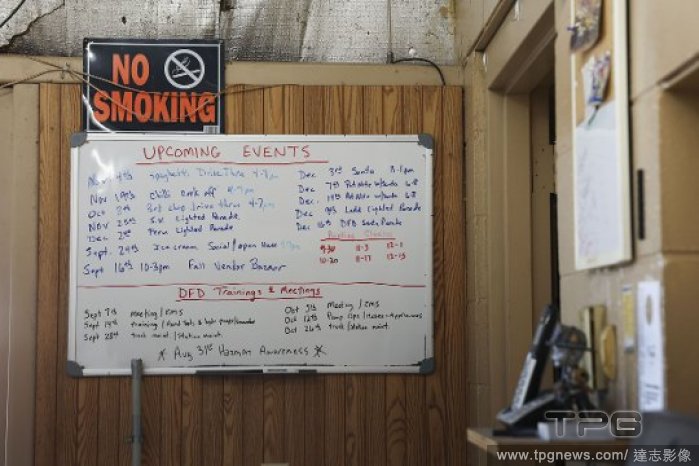 NO
SMOKING
UPCOMING EVENTS
Nov 4th Spaghetti Drive Thru 4-7pm
Nov 19th Chili Cook off 4-7pm
Oct Drive thru 4-7pm
Nov 25th S.V. Lighted Parade
Dec 2nd Peru Lighted Parade
Sept. 24th Ice cream Social/open House
Sept 16th 10-3pm Fall Vendor Bazaar
Dec 3rd Santa
Dec. 7th 6-8
Dec. 14th 6-8
Dec 9th Lighted Parade
Dec 16th DFD Santa Parade
9-30 11-3 12-1
10-20 11-17 12-15
DFD Trainings & Meetings
Sept 7th meeting/EMS
Sept 14th training/Hand tools &
Sept 28th truck maint./Station maint.
Oct 5th Meeting/EMS
Oct 12th Pump Ops/
Oct 26th truck/Station maint.
Aug 31st Hazmat Awareness
TPG
www.tpgnews.com/ 達志影像